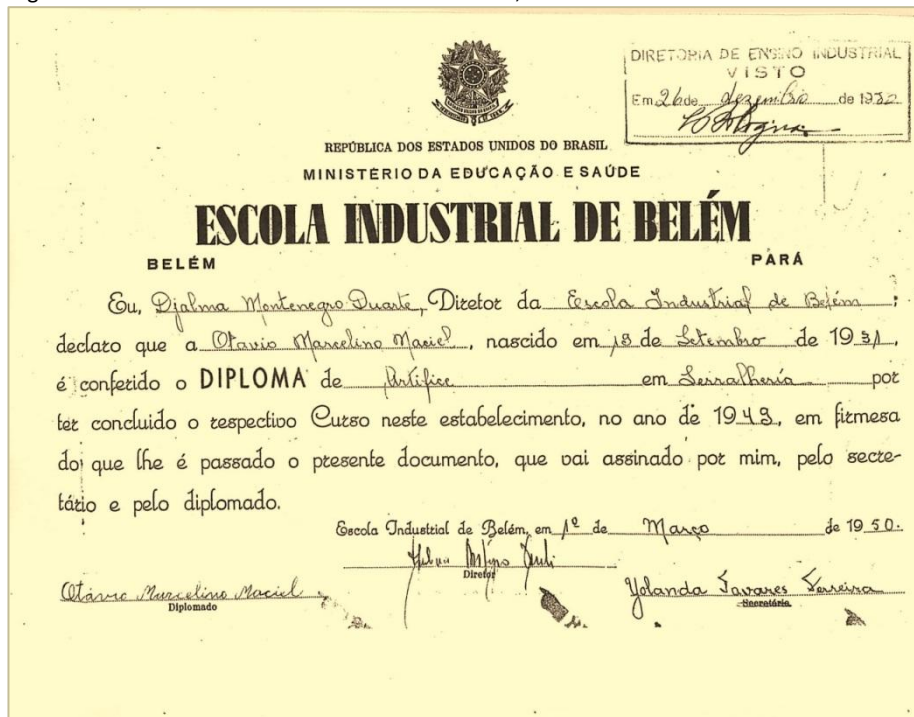 DIRETORIA DE ENSINO INDUSTRIAL
VISTO
Em 26 de dezembro de 1950
REPÚBLICA DOS ESTADOS UNIDOS DO BRASIL
MINISTÉRIO DA EDUCAÇÃO E SAÚDE
ESCOLA INDUSTRIAL DE BELÉM
BELÉM PARÁ
Eu, Djalma Montenegro Duarte, Diretor da Escola Industrial de Belém ;
declaro que a Otavio Marcelino Maciel, nascido em 18 de Setembro de 1931,
é conferido o DIPLOMA de Artifice em Serralheria por
ter concluido o respectivo Curso neste estabelecimento, no ano de 1949, em firmesa
do que lhe é passado o presente documento, que vai assinado por mim, pelo secre-
tário e pelo diplomado.
Escola Industrial de Belém, em 1º de Março de 1950.
Diretor
Otávio Marcelino Maciel
Diplomado
Yolanda Tavares Ferreira
Secretária